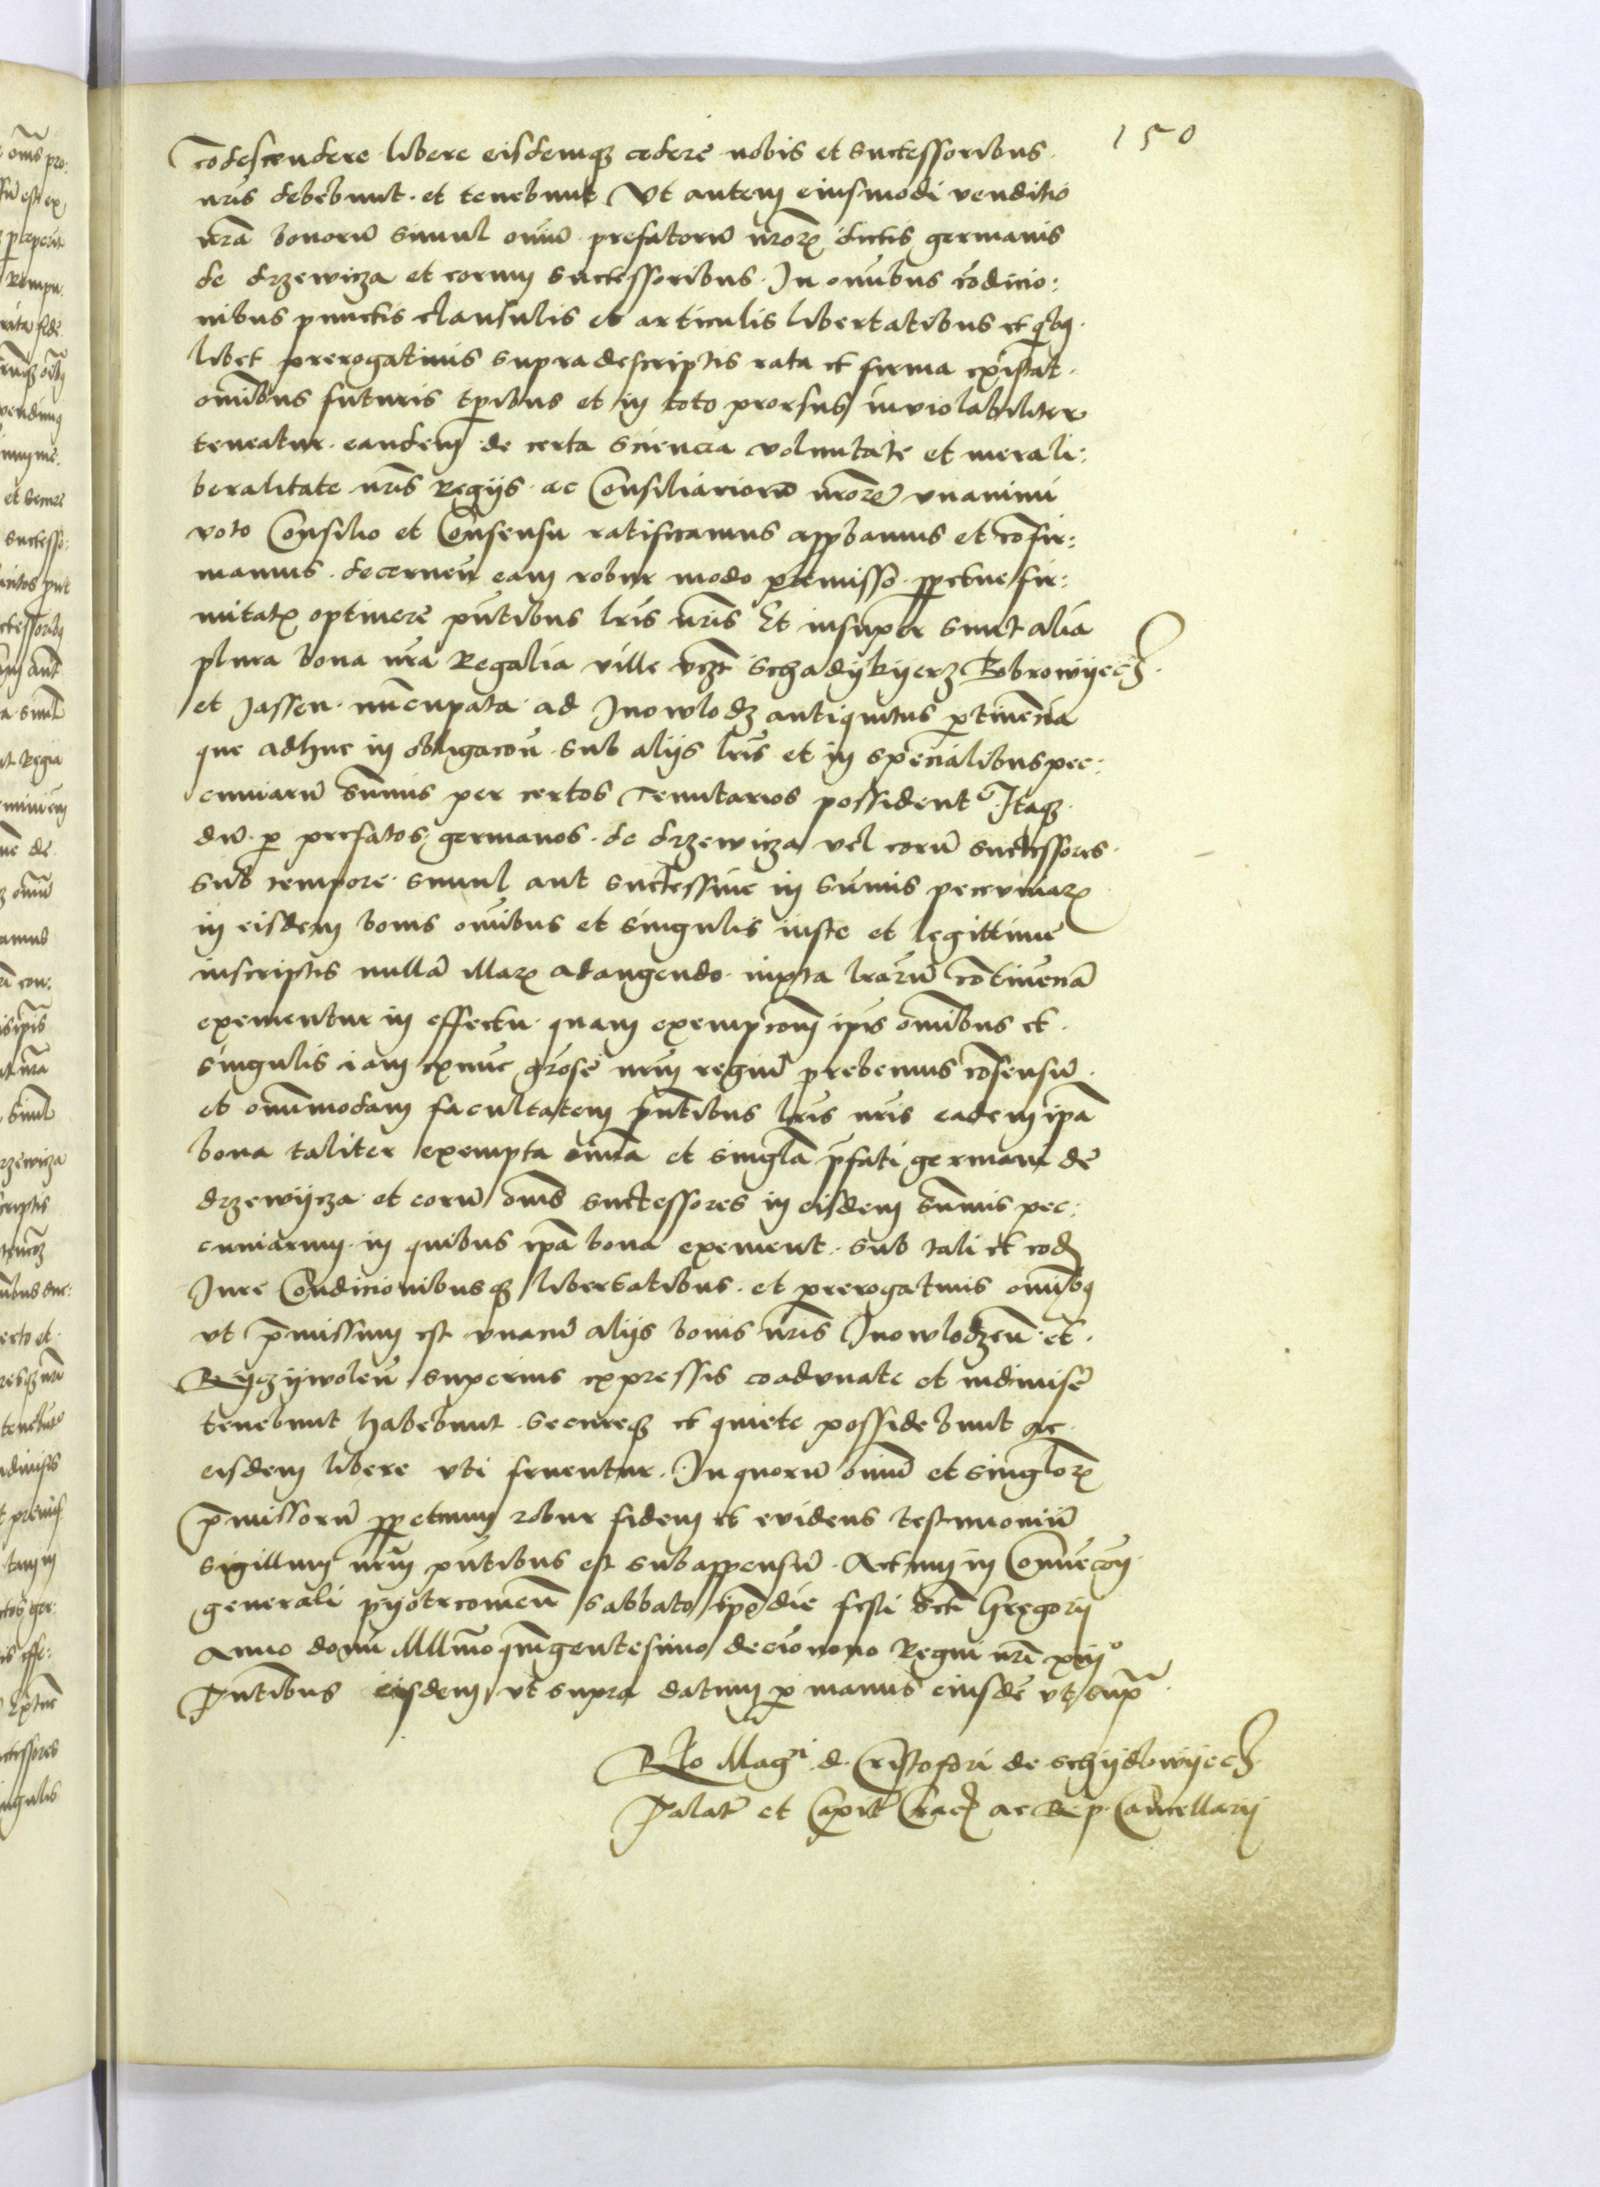 150
co̅descendere libere eisdemq3 cedere nobis et successoribus
nr̅is debebunt et tenebunt Vt autem eiusmodi venditio
nr̅a bonoru̅ simul om̅iu̅ prefatoru̅ nr̅oꝝ dictis germanis
de drzewicza et eorum successoribus In om̅ibus co̅dicio:
nibus punctis clausulis et articulis libertatibus et qͥbꝯ
libet prerogatiuis supradescriptis rata et firma existat
om̅ibus futuris tp̅ibus et in toto prorsus inviolabiliter
teneatur eandem de certa sciencia voluntate et mera li:
beralitate nr̅is Regijs ac Consiliarioru̅ nr̅oꝝ vnanimi
voto Consilio et Consensu ratificamus app̱bamus et co̅fir:
mamus decernen̅ eam robur modo premisso ꝑpetue fir:
mitatꝭ optinere pn̅tibus lr̅is nr̅is Et insuper sunt alia
plura bona nr̅a Regalia ville vcz̅t Schadykyerz Bobrowyecz
et Jassen nu̅cupata ad Jnowlodz antiquitus ꝑtinencia
que adhuc in obligacon̅ sub alijs lr̅is et in specialibus pec:
cuniaru̅ su̅mis per certos Tenutarios possident᷑ Itaq3
du̅ ꝑ prefatos germanos de drzewicza vel eoru̅ successores
sub tempore simul aut successiue in su̅mis pecuniaꝝ
in eisdem bonis om̅ibus et singulis iuste et legittime
inscriptis nulla̅ Maꝝ adaugendo iuxta lr̅aru̅ co̅tinencia̅
exementur in effectu quam exempcom̅ ip̅is om̅ibus et
singulis iam exnuc gr̅ose nr̅m regiu̅ prebemus co̅sensu̅
et om̅imodam facultatem pn̅tibus lr̅is nr̅is eadem ip̅a
bona taliter exempta om̅ia et singl̅a p̅fati germani de
drzewycza et eoru̅ om̅s successores in eisdem su̅mis pec:
cuniarum in quibus ip̅a bona exement sub tali et eod̅
Jure Condicionibusq3 libertatibus et prerogatiuis om̅ibꝯ
vt p̅missum est vnacu̅ alijs bonis nr̅is Jnowlodzen̅ et
Ryczywolen̅ superius expressis coadvnate et indiuise
tenebunt habebunt secureq3 et quiete possidebunt ac
eisdem libere vti fruentur In quoru̅ om̅iu̅ et singl̅oꝝ
p̅missoru̅ ꝑpetuum robur fidem et evidens testimoniu̅
sigillum nr̅m pn̅tibus est subappensu̅ Actum in Conue̅con̅
generali pyotrcouien̅ sabbato ip̅o die festi Sct̅i Gregorij
Anno domi̅ Mill̅mo quingentesimo deci̅onono Regni nr̅i xiijͦ
Pn̅tibus eisdem vt supra datum ꝑ manus eiusde̅ vt supᷓ
Rl̅o Mag̅ci d. Cristofori de Schydlowyecz
Palat᷑ et Capit᷑ Crac̅ ac R. p. Cancellarij